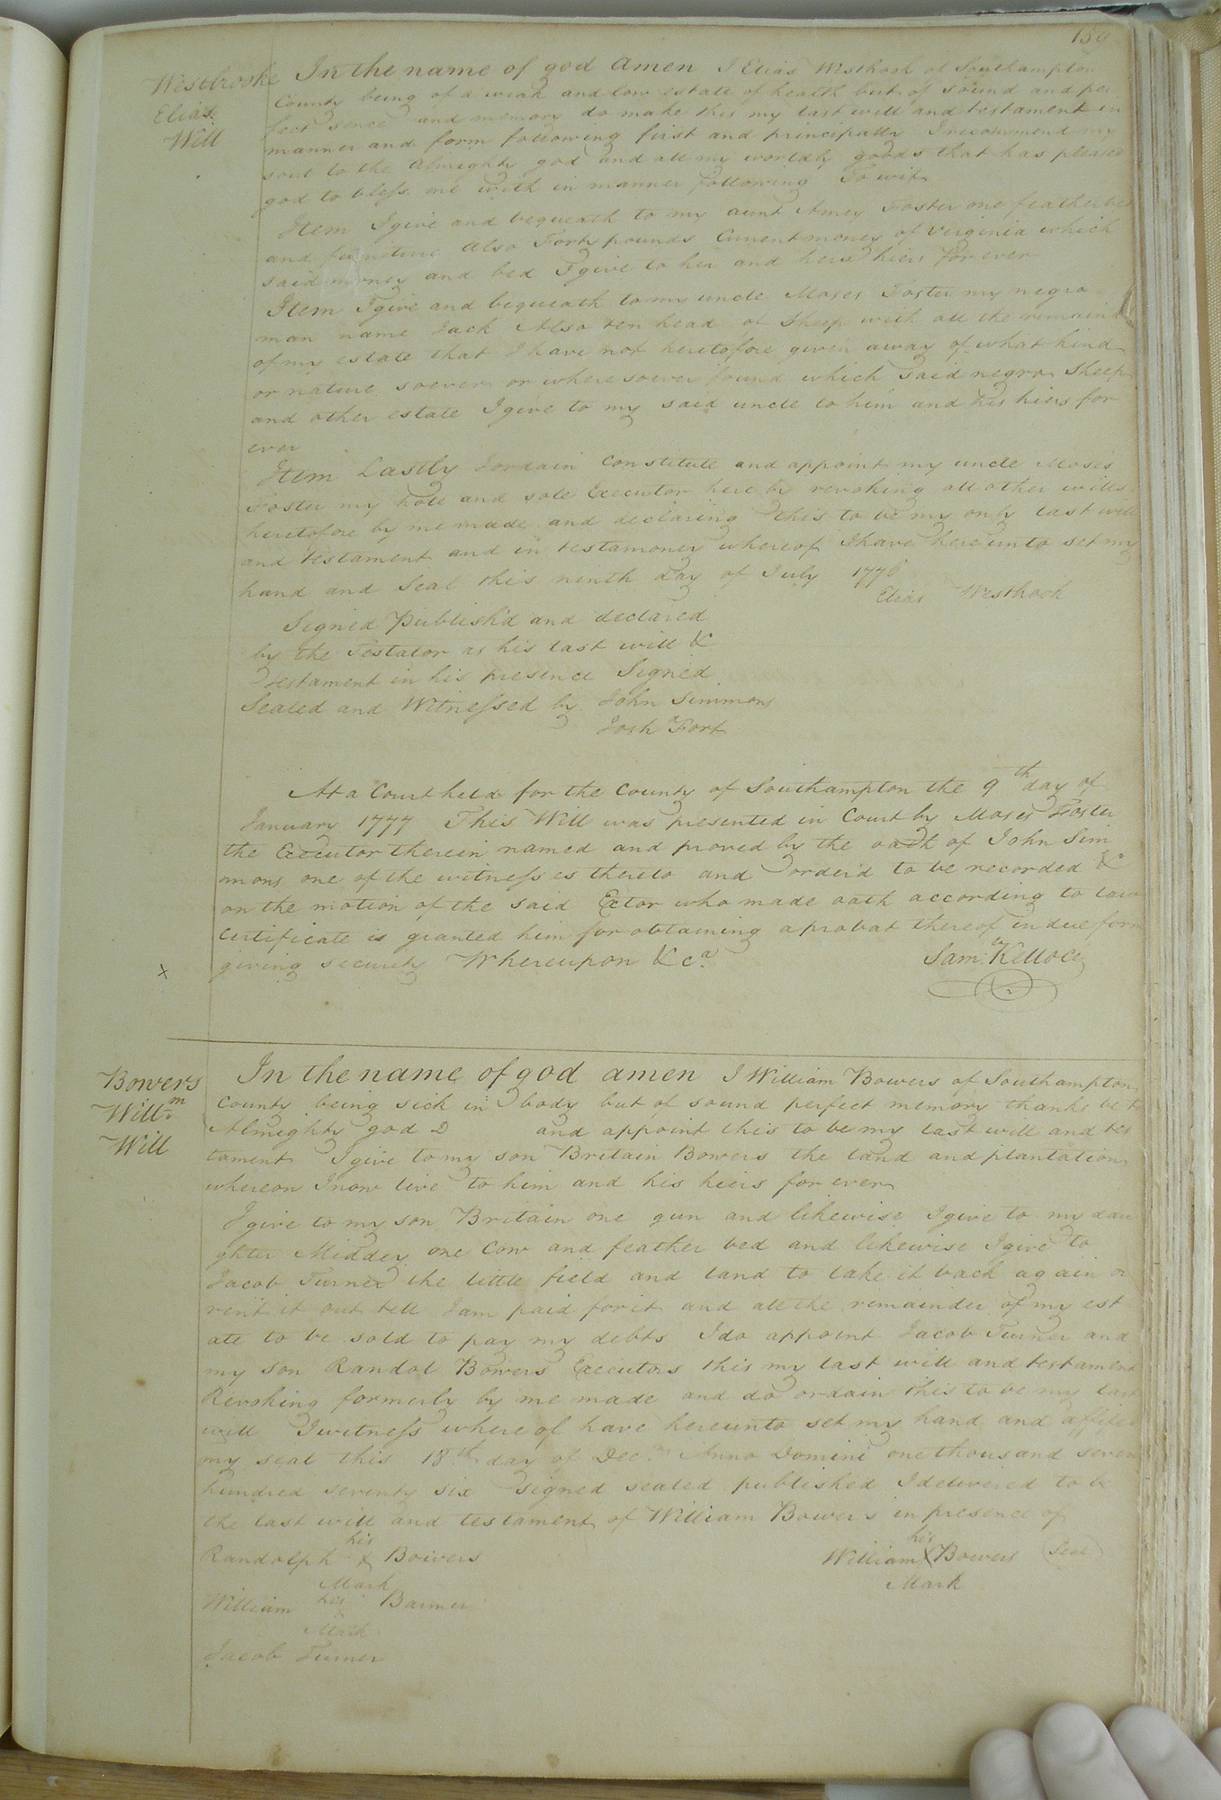 159
Westbrooke
Elias
Will
In the name of god Amen I Elias Westbook of Southampton
County being of a weak and low estate of health but of sound and per
fect sence and memory do make this my last will and testament in
manner and form following first and principally I recommend my
soul to the Almighty god and all my worldly goods that has pleased
god to bless me with in manner following To wit
Item I give and bequeath to my aunt Amey Foster one feather bed
and furniture Also Forty pounds Current money of Virginia which
said money and bed I give to her and hers hiers for ever
Item I give and bequeath to my uncle Moses Foster my negro
man name Jack Also ten head of Sheep with all the remaind
of my estate that I have not heretofore given away of what kind
or nature soever or where soever found which said negro Sheep
and other estate I give to my said uncle to him and his hiers for
ever
Item Lastly I ordain Constitute and appoint my uncle Moses
Foster my hole and sole Executor here by revoking all other wills
heretofore by me made and declaring this to be my only last will
and testament and in testamoney whereof I have hereunto set my
hand and Seal this ninth day of July 1776
Elias Westbook
Signed Publish'd and declared
by the Testator as his last will &
Testament in his presence Signed
Sealed and Witnessed by John Simmons
Josh Fort
At a Court held for the County of Southampton the 9th day of
January 1777 This Will was presented in Court by Moses Foster
the Executor therein named and proved by the oath of John Sim
mons one of the witnesses thereto and orderd to be recorded &
on the motion of the said Exctor who made oath according to law
Certificate is granted him for obtaining a probat thereof in due form
giving security Whereupon &ca
Saml Kello Cy
x
Bowers
Willm
Will
In the name of god amen I William Bowers of Southampton
County being sick in body but of sound perfect memory thanks be to
Almighty god D and appoint this to be my last will and tes
tament I give to my son Britain Bowers the land and plantation
whereon I now live to him and his hiers for ever
I give to my son Britain one gun and likewise I give to my dau
ghter Middey one Cow and feather bed and likewise I give to
Jacob Turner the little field and land to take it back again or
rent it out tell I am paid for it and all the remainder of my est
ate to be sold to pay my debts I do appoint Jacob Turner and
my son Randol Bowers Executors this my last will and testament
Revoking formerly by me made and do ordain this to be my last
will I witness where of have hereunto set my hand and affixed
my seal this 18th day of Decr Anno Domini one thousand seven
hundred seventy six signed sealed published I delivered to be
the last will and testament of William Bowers in presence of
Randolph his x Bowers
Mark
William his x Bowers Seal
Mark
William his Barmer
Mark
Jacob Turner